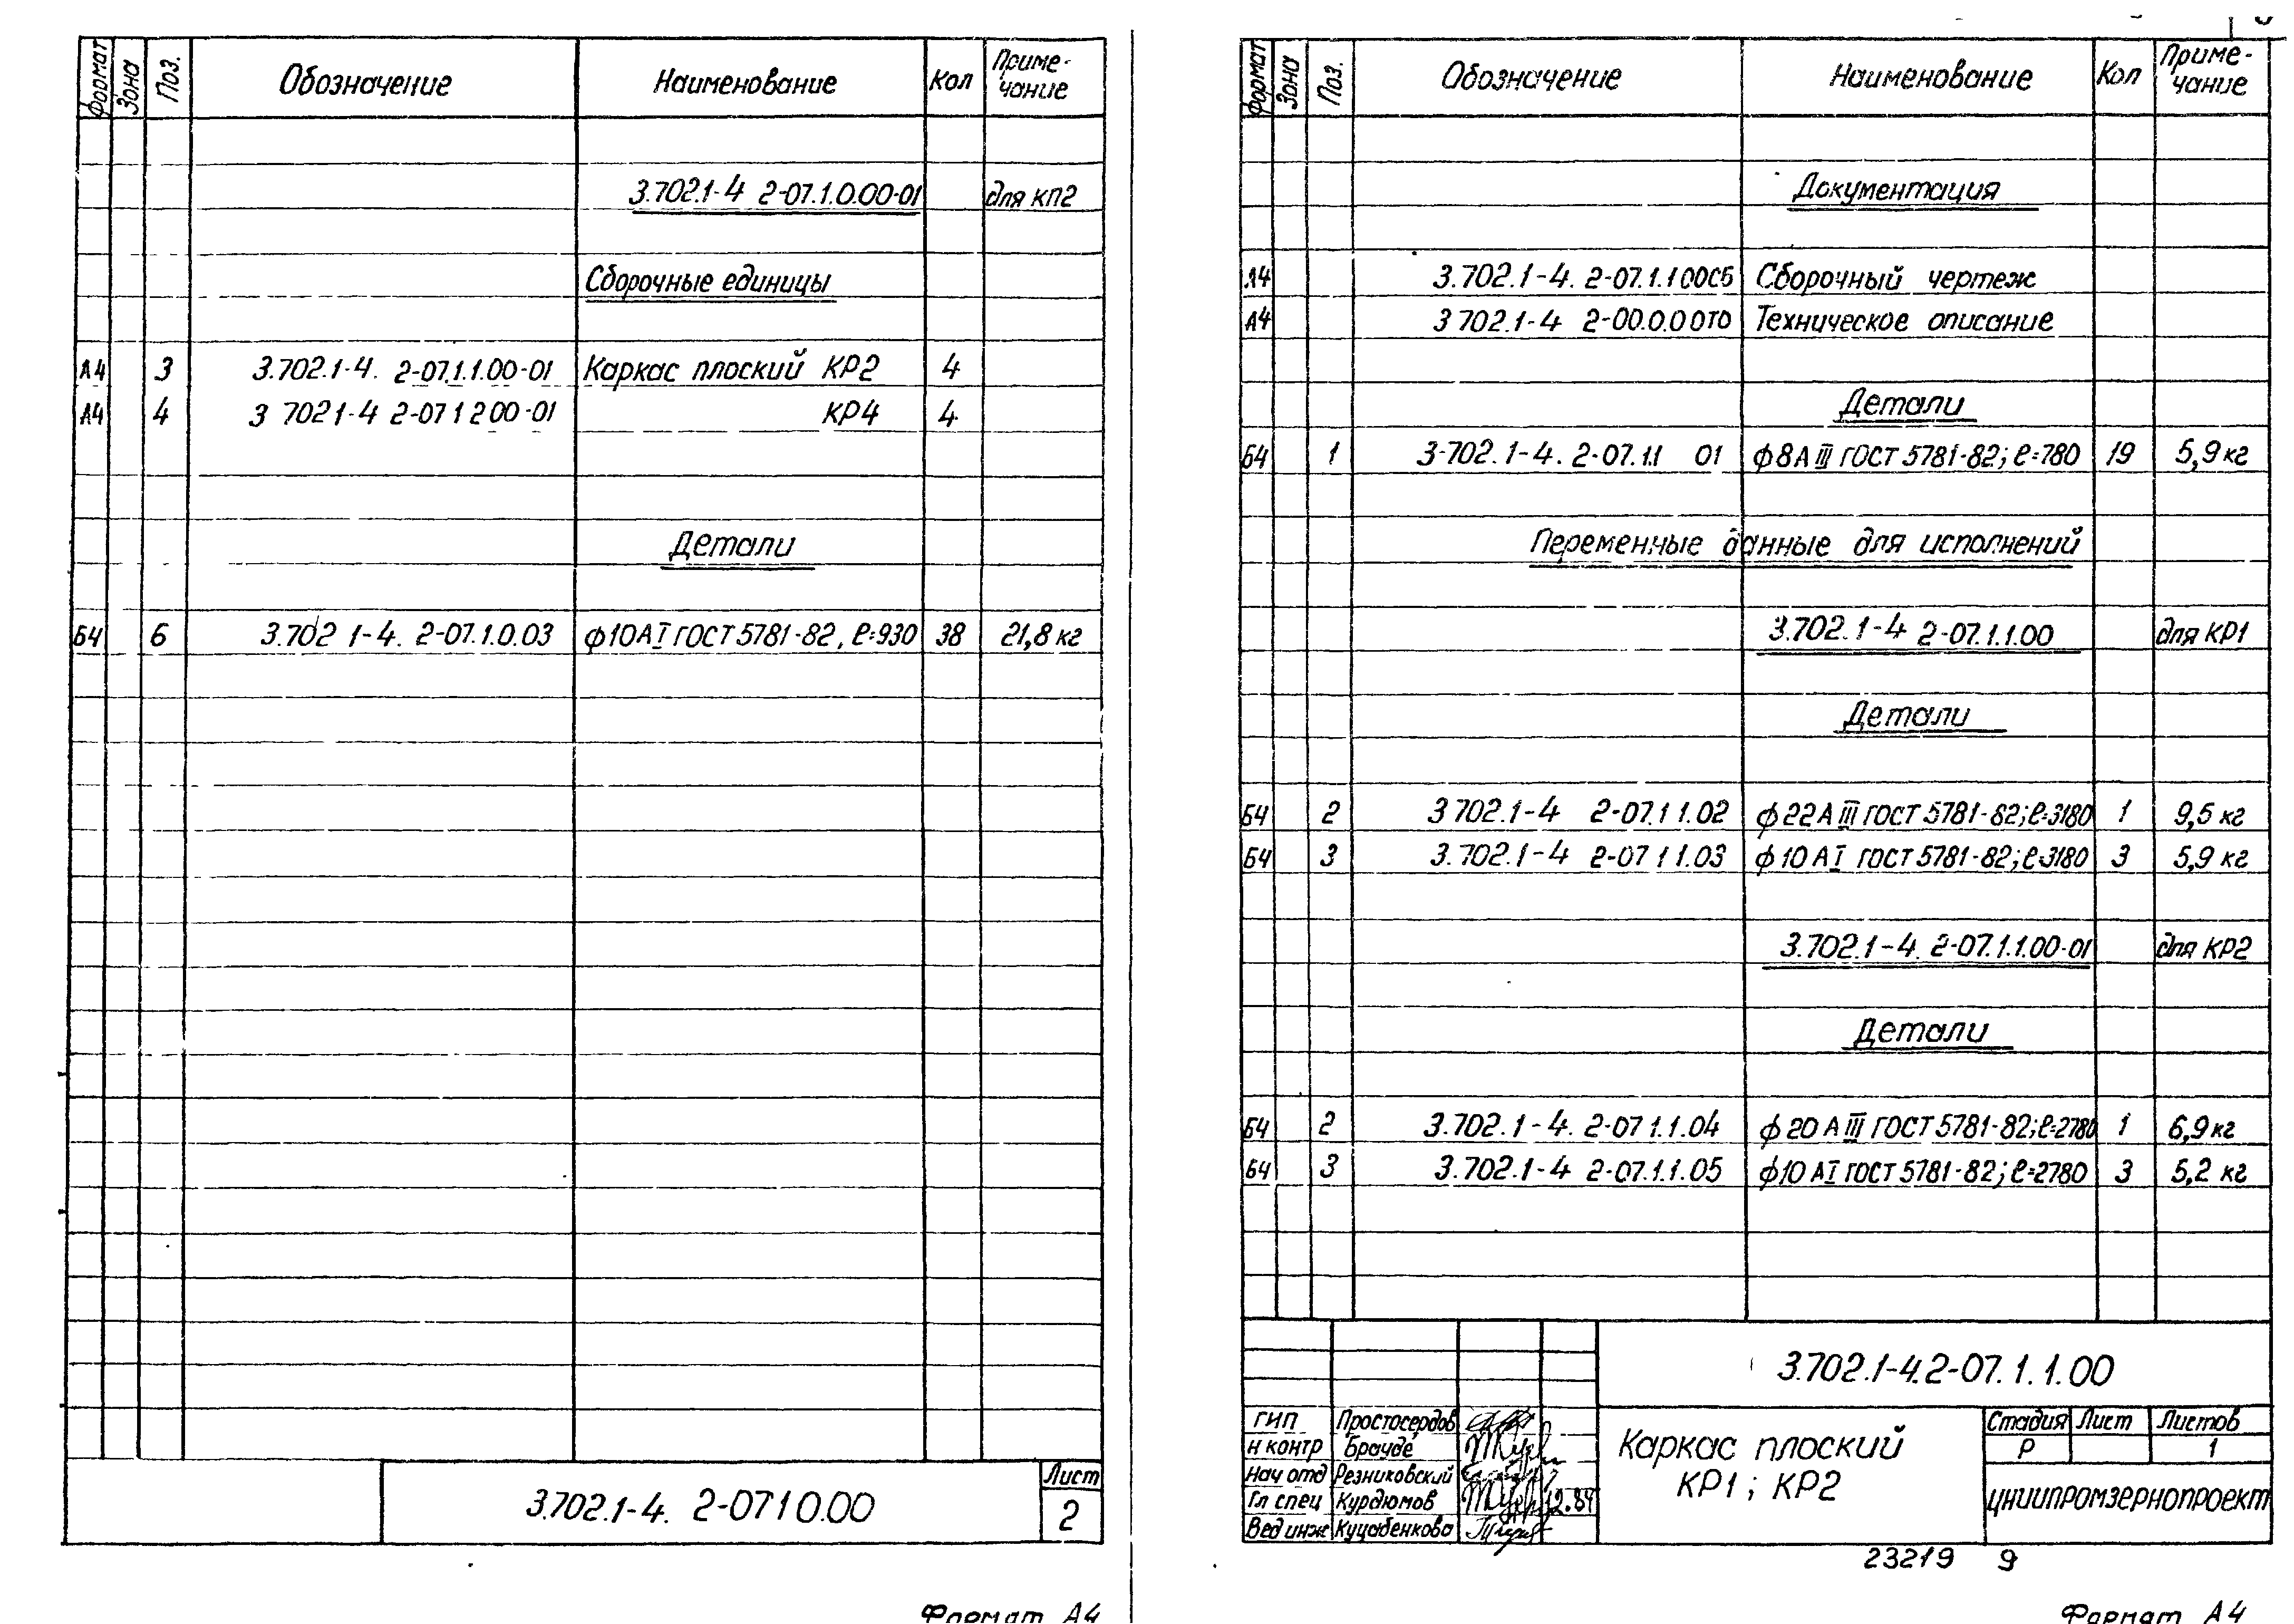 Формат Зона Поз. Обозначение Наименование Кол Приме-чание
3.702.1-4 2-07.1.0.00-01 для КП2
Сборочные единицы
А4 3 3.702.1-4. 2-07.1.1.00-01 Каркас плоский КР2 4
А4 4 3 702 1-4 2-07 1 2 00-01 КР4 4
Детали
Б4 6 3.702 1-4. 2-07.1.0.03 ф10АI ГОСТ 5781-82, ℓ=930 38 21,8 кг
3.702.1-4. 2-07 1 0.00
Лист
2
Формат А4
Формат Зона Поз. Обозначение Наименование Кол Приме-чание
Документация
А4 3.702.1-4. 2-07.1.1 00СБ Сборочный чертеж
А4 3 702.1-4 2-00.0.00ТО Техническое описание
Детали
Б4 1 3-702.1-4. 2-07.1.1 01 ф8АIII ГОСТ 5781-82; ℓ=780 19 5,9 кг
Переменные данные для исполнений
3.702.1-4 2-07.1.1.00 для КР1
Детали
Б4 2 3 702.1-4 2-07.1 1.02 ф22АIII ГОСТ 5781-82; ℓ=3180 1 9,5 кг
Б4 3 3.702.1-4 2-07 1 1.03 ф10 АI ГОСТ 5781-82; ℓ=3180 3 5,9 кг
3.702.1-4. 2-07.1.1.00-01 для КР2
Детали
Б4 2 3.702.1-4. 2-07 1.1.04 ф20 АIII ГОСТ 5781-82; ℓ=2780 1 6,9 кг
Б4 3 3.702.1-4 2-07.1.1.05 ф10 АI ГОСТ 5781-82; ℓ=2780 3 5,2 кг
3.702.1-4.2-07.1.1.00
ГИП Простосердов
Н контр Брауде
Нач отд Резниковский
Гл спец Курдюмов 12.84
Вед инж Куцабенкова
Каркас плоский
КР1; КР2
Стадия Лист Листов
Р 1
ЦНИИПРОМЗЕРНОПРОЕКТ
23219 9
Формат А4